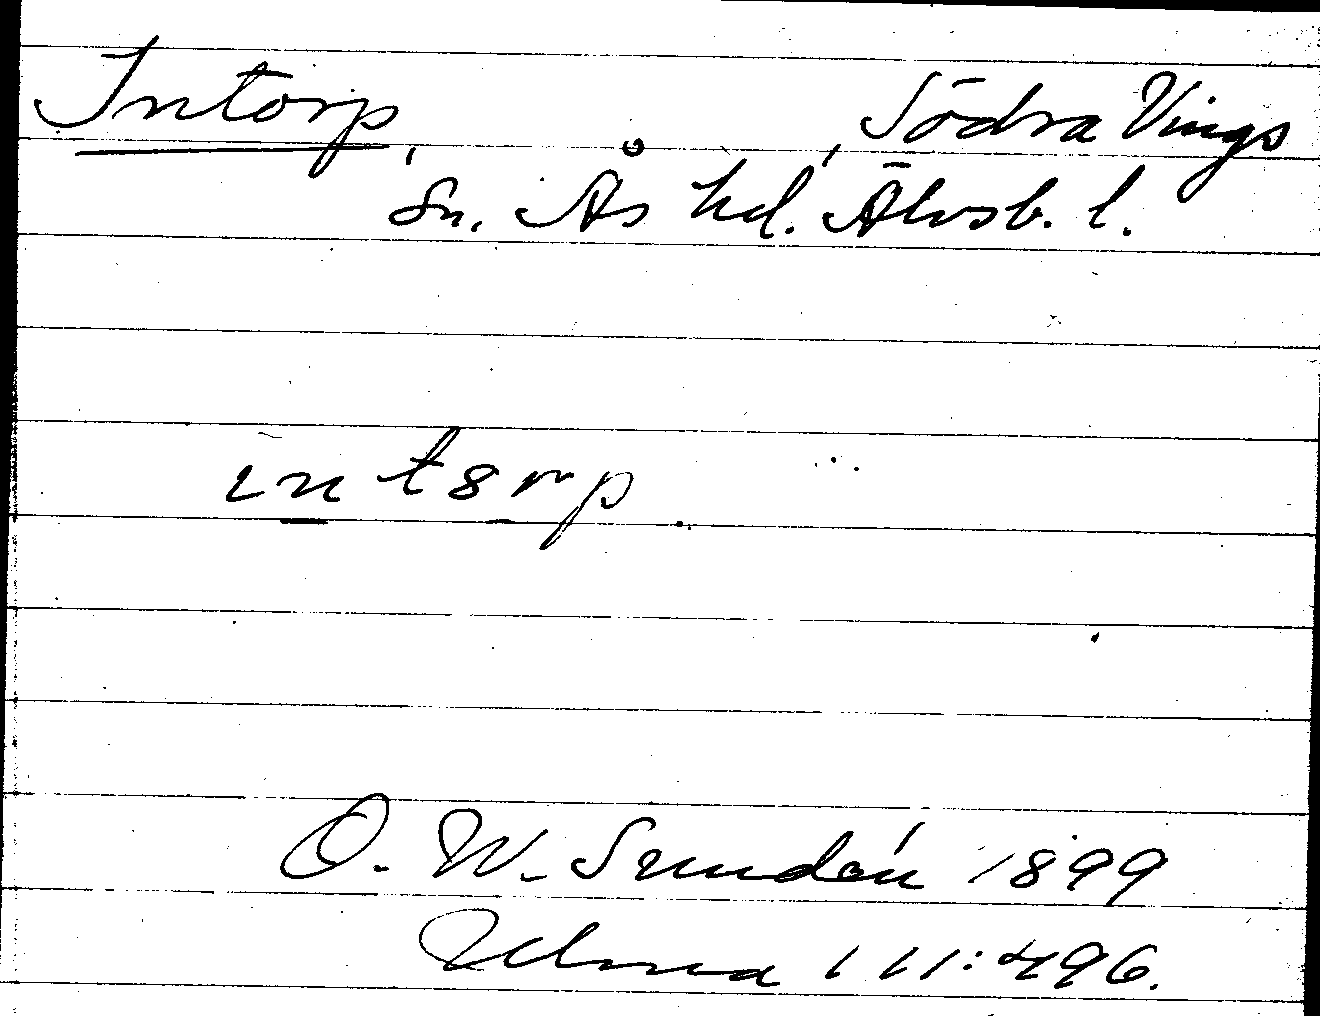 Intorp, Södra Vings
sn. Ås hd. Älvsb. l.
intorp.
O. W. Sundén 1899
Ulma 111:496.